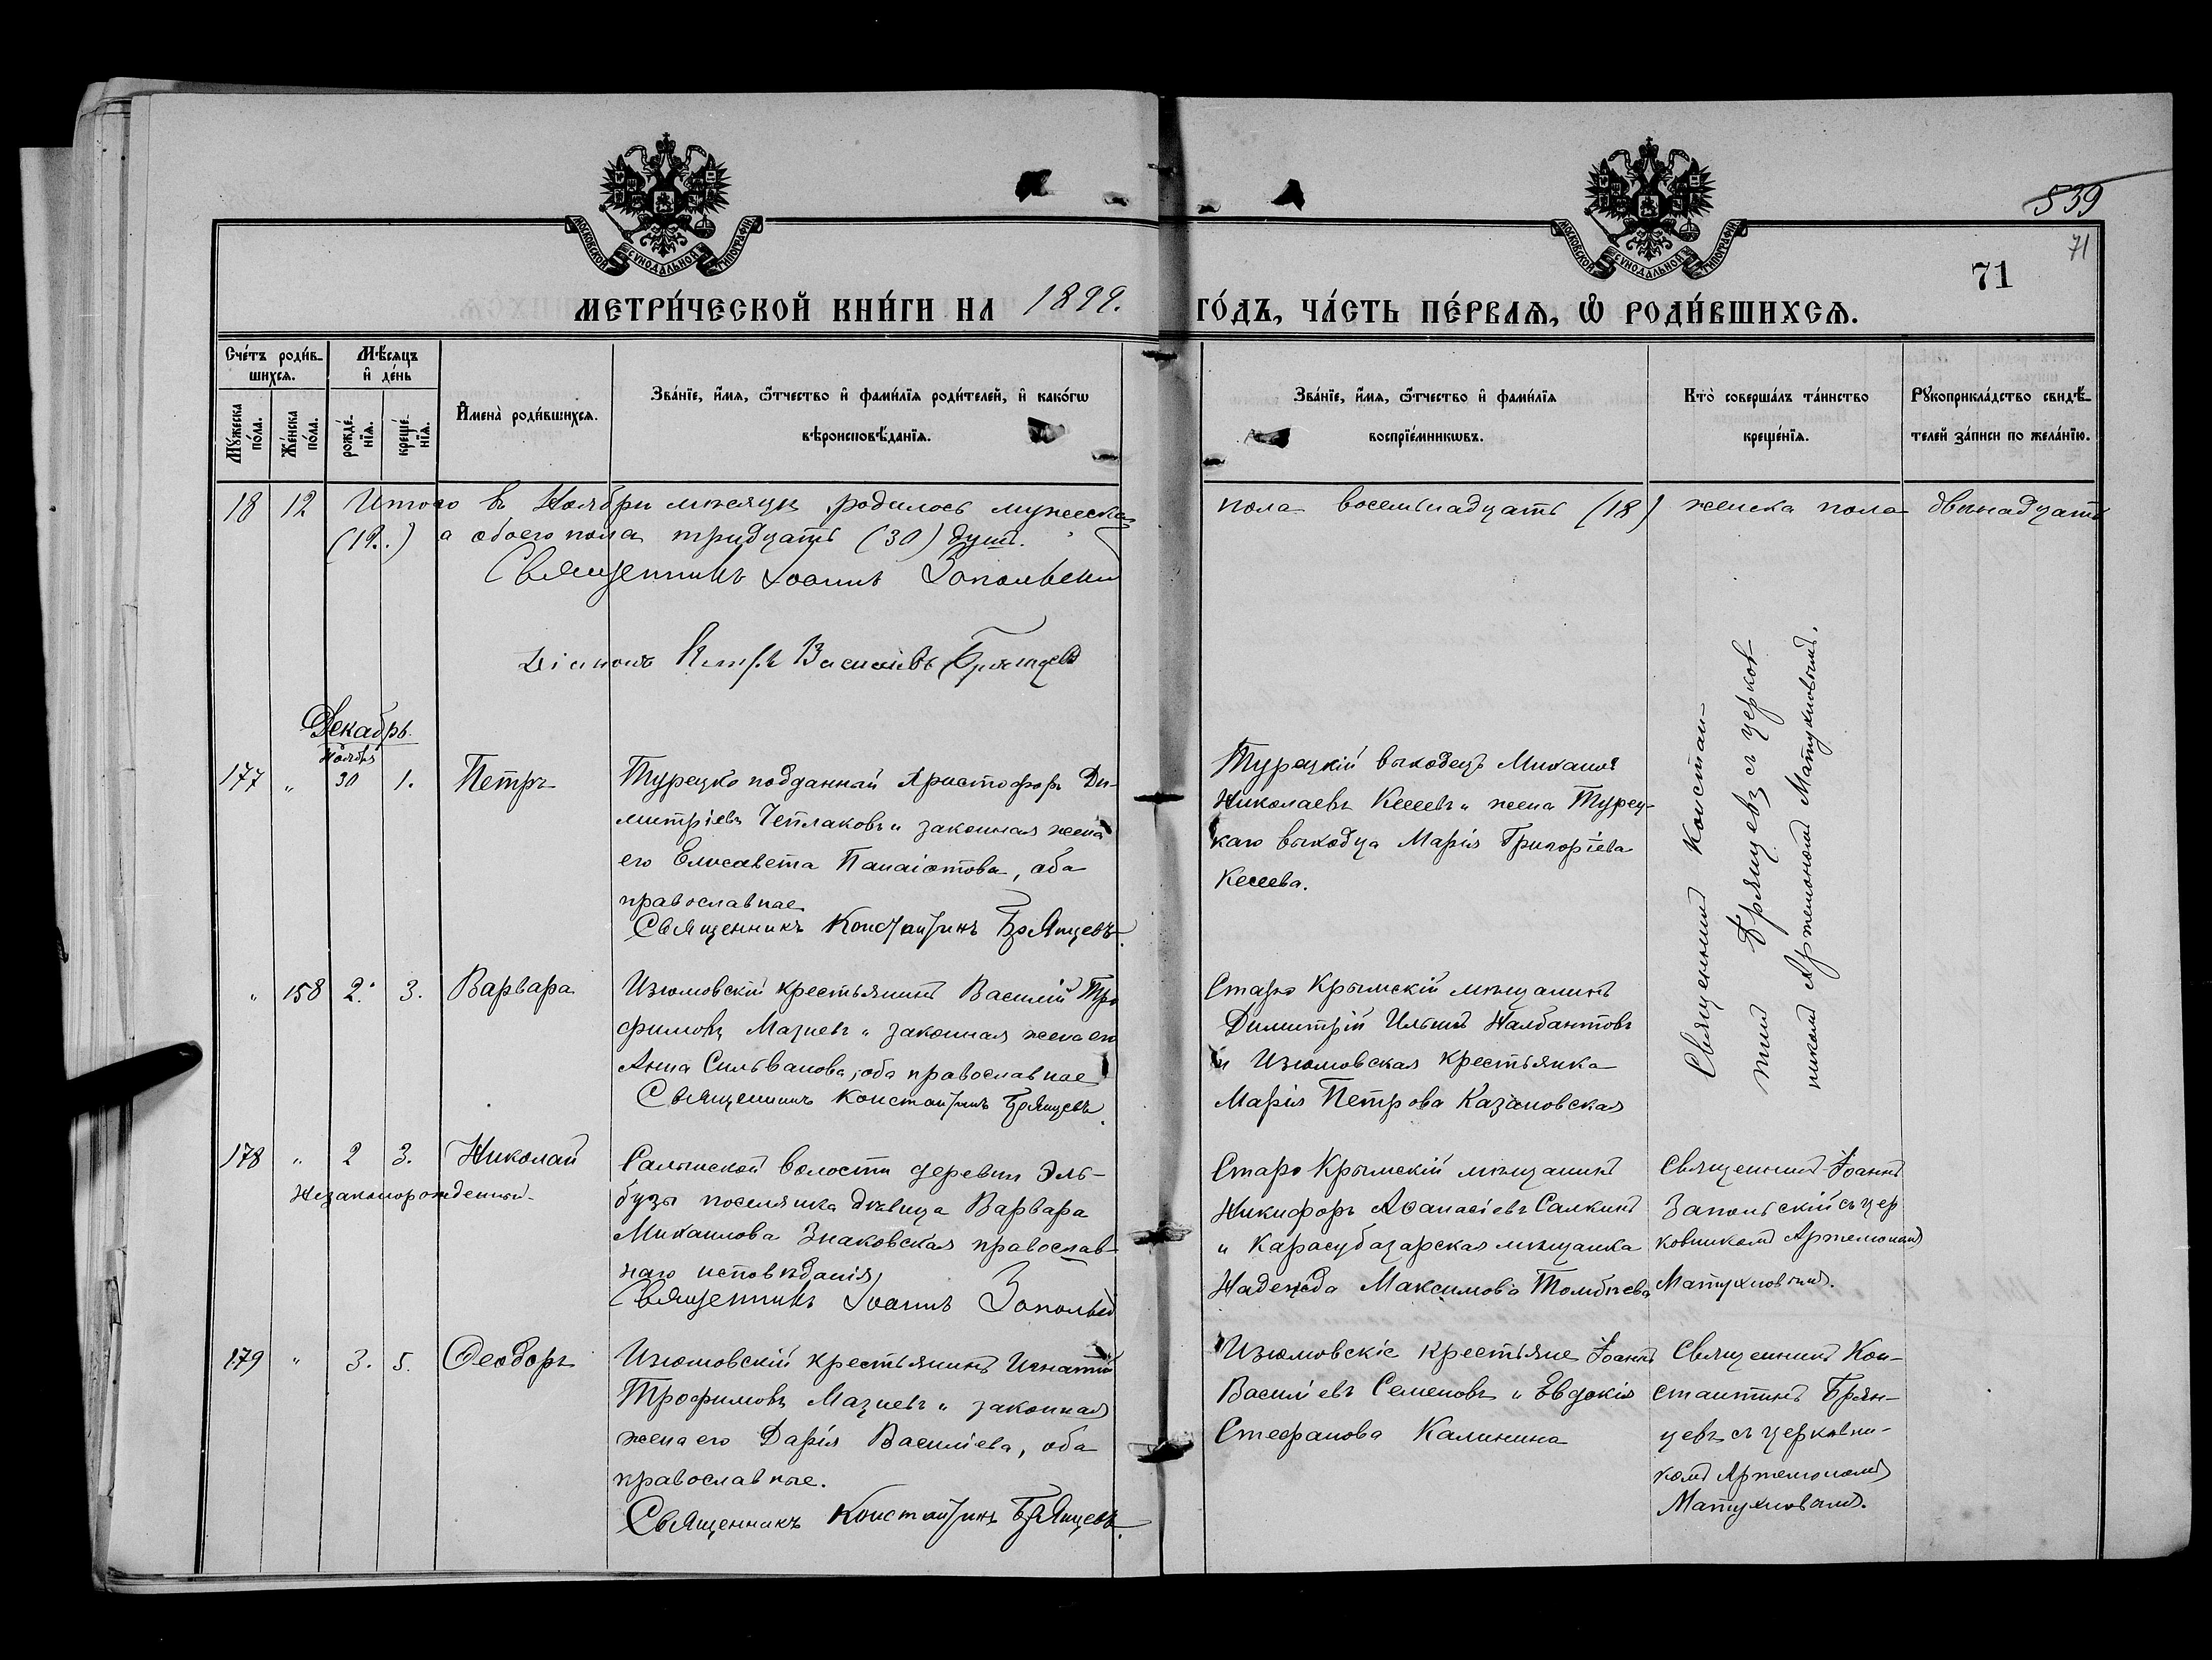 539
71
71
МОСКОВСКОЙ СѴНОДАЛЬНОЙ ТИПОГРАФІИ
МОСКОВСКОЙ СѴНОДАЛЬНОЙ ТИПОГРАФІИ
МЕТРИ́ЧЕСКОЙ КНИ́ГИ НА 1899. ГО́ДЪ, ЧА́СТЬ ПЕ́РВАЯ, Ѡ РОДИ́ВШИХСЯ.
Сче́тъ роди́в-
шихся.
Мѣ́сяцъ
и де́нь
Му́жеска по́ла.
Же́нска по́ла.
рожде́-
нія.
креще́-
нія.
Имена̀ роди́вшихся.
Зва́ніе, и́мя, ѻ́тчество и фами́лія роди́телей, и како́гѡ
вѣроисповѣ́данія.
Зва́ніе, и́мя, ѻ́тчество и фами́лія
воспріе́мникѡвъ.
Кто̀ соверша́лъ та́инство
креще́нія.
Рꙋкоприкла́дство свидѣ́-
телей за́писи по жела́нію.
18 12 Итого въ Ноябрѣ мѣсяцѣ родилось мужеска пола восемнадцать (18) женска пола двѣнадцать
(12.) а обоего пола тридцать (30) душъ.
Священникъ Іоаннъ Запольскій
Діаконъ Петръ Васильевъ Брящевъ
Декабрь
Ноября
177 " 30 1. Петръ
Турецко подданный Христофоръ Ди-
митріевъ Чеплаковъ и законная жена
его Елисавета Панаіотова, оба
православные
Священникъ Константинъ Брянцевъ.
Турецкій выходецъ Михаилъ
Николаевъ Кесеевъ и жена Турец-
каго выходца Марія Григоріева
Кесеева.
Священникъ Констан-
тинъ Брянцевъ съ церков-
никомъ Артемономъ Матухновымъ.
" 158 2. 3. Варвара
Изюмовскій крестьянинъ Василій Тро
фимовъ Мазневъ и законная жена его
Анна Сильванова, оба православные
Священникъ Константинъ Брянцевъ.
Старо Крымскій мѣщанинъ
Димитрій Ильинъ Налбантовъ
и Изюмовская крестьянка
Марія Петрова Казановская
178 " 2 3. Николай
Незаконорожденный
Салынской волости деревни Эль-
бузы поселянка дѣвица Варвара
Михаилова Знаковская православ-
наго исповѣданія,
Священникъ Іоаннъ Запольскій
Старо Крымскій мѣщанинъ
Никифоръ Аѳанасіевъ Салкинъ
и Карасубазарская мѣщанка
Надежда Максимова Толбаева
Священникъ Іоаннъ
Запольскій съ цер
ковникомъ Артемономъ
Матухновымъ.
179 " 3. 5. Ѳеодоръ
Изюмовскій крестьянинъ Игнатій
Трофимовъ Мазневъ и законная
жена его Дарія Василіева, оба
православные.
Священникъ Константинъ Брянцевъ.
Изюмовскіе крестьяне Іоаннъ
Василіевъ Семеновъ и Евдокія
Стефанова Калинина
Священникъ Кон-
стантинъ Брян-
цевъ съ церковни-
комъ Артемономъ
Матухновымъ.